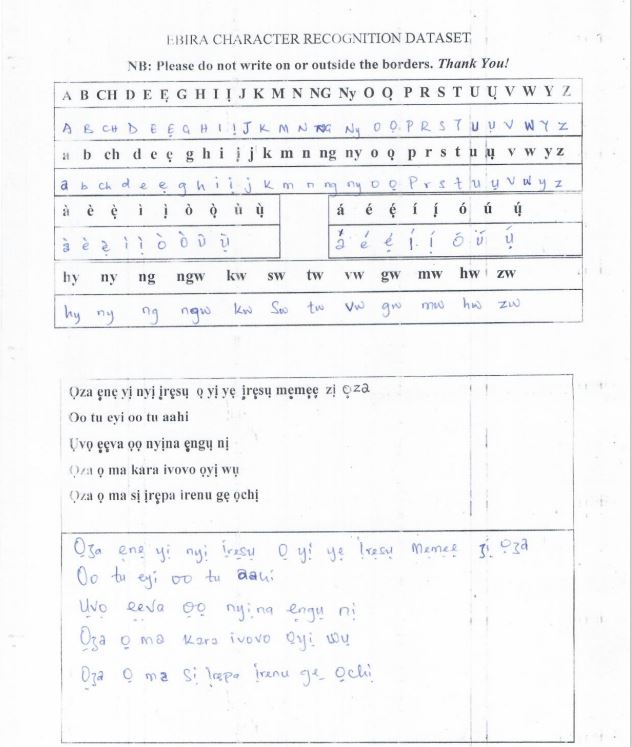 EBIRA CHARACTER RECOGNITION DATASET
NB: Please do not write on or outside the borders. Thank You!
A B CH D E Ẹ G H I Ị J K M N NG Ny O Ọ P R S T U Ụ V W Y Z
A B CH D E Ẹ G H I Ị J K M N NG Ny O Ọ P R S T U Ụ V W Y Z
a b ch d e ẹ g h i ị j k m n ng ny o ọ p r s t u ụ v w y z
a b ch d e ẹ g h i ị j k m n ng ny o ọ p r s t u ụ v w y z
à è ẹ̀ ì ị̀ ò ọ̀ ù ụ̀ á é ẹ́ í ị́ ó ú ụ́
à è ẹ̀ ì ị̀ ò ọ̀ ù ụ̀ á é ẹ́ í ị́ ó ú ụ́
hy ny ng ngw kw sw tw vw gw mw hw zw
hy ny ng ngw kw sw tw vw gw mw hw zw
Ọza ẹnẹ yị nyị ịrẹsụ ọ yị yẹ ịrẹsụ mẹmẹẹ zị ọza
Oo tu eyi oo tu aahi
Ụvọ ẹẹva ọọ nyịna ẹngụ nị
Ọza ọ ma kara ivovo ọyị wụ
Ọza ọ ma sị ịrẹpa irenu gẹ ọchị
Ọza ẹnẹ yị nyị ịrẹsụ ọ yị yẹ ịrẹsụ mẹmẹẹ zị ọza
Oo tu eyi oo tu aahi
Ụvọ ẹẹva ọọ nyịna ẹngụ nị
Ọza ọ ma kara ivovo ọyị wụ
Ọza ọ ma sị ịrẹpa ịrenu gẹ ọchị